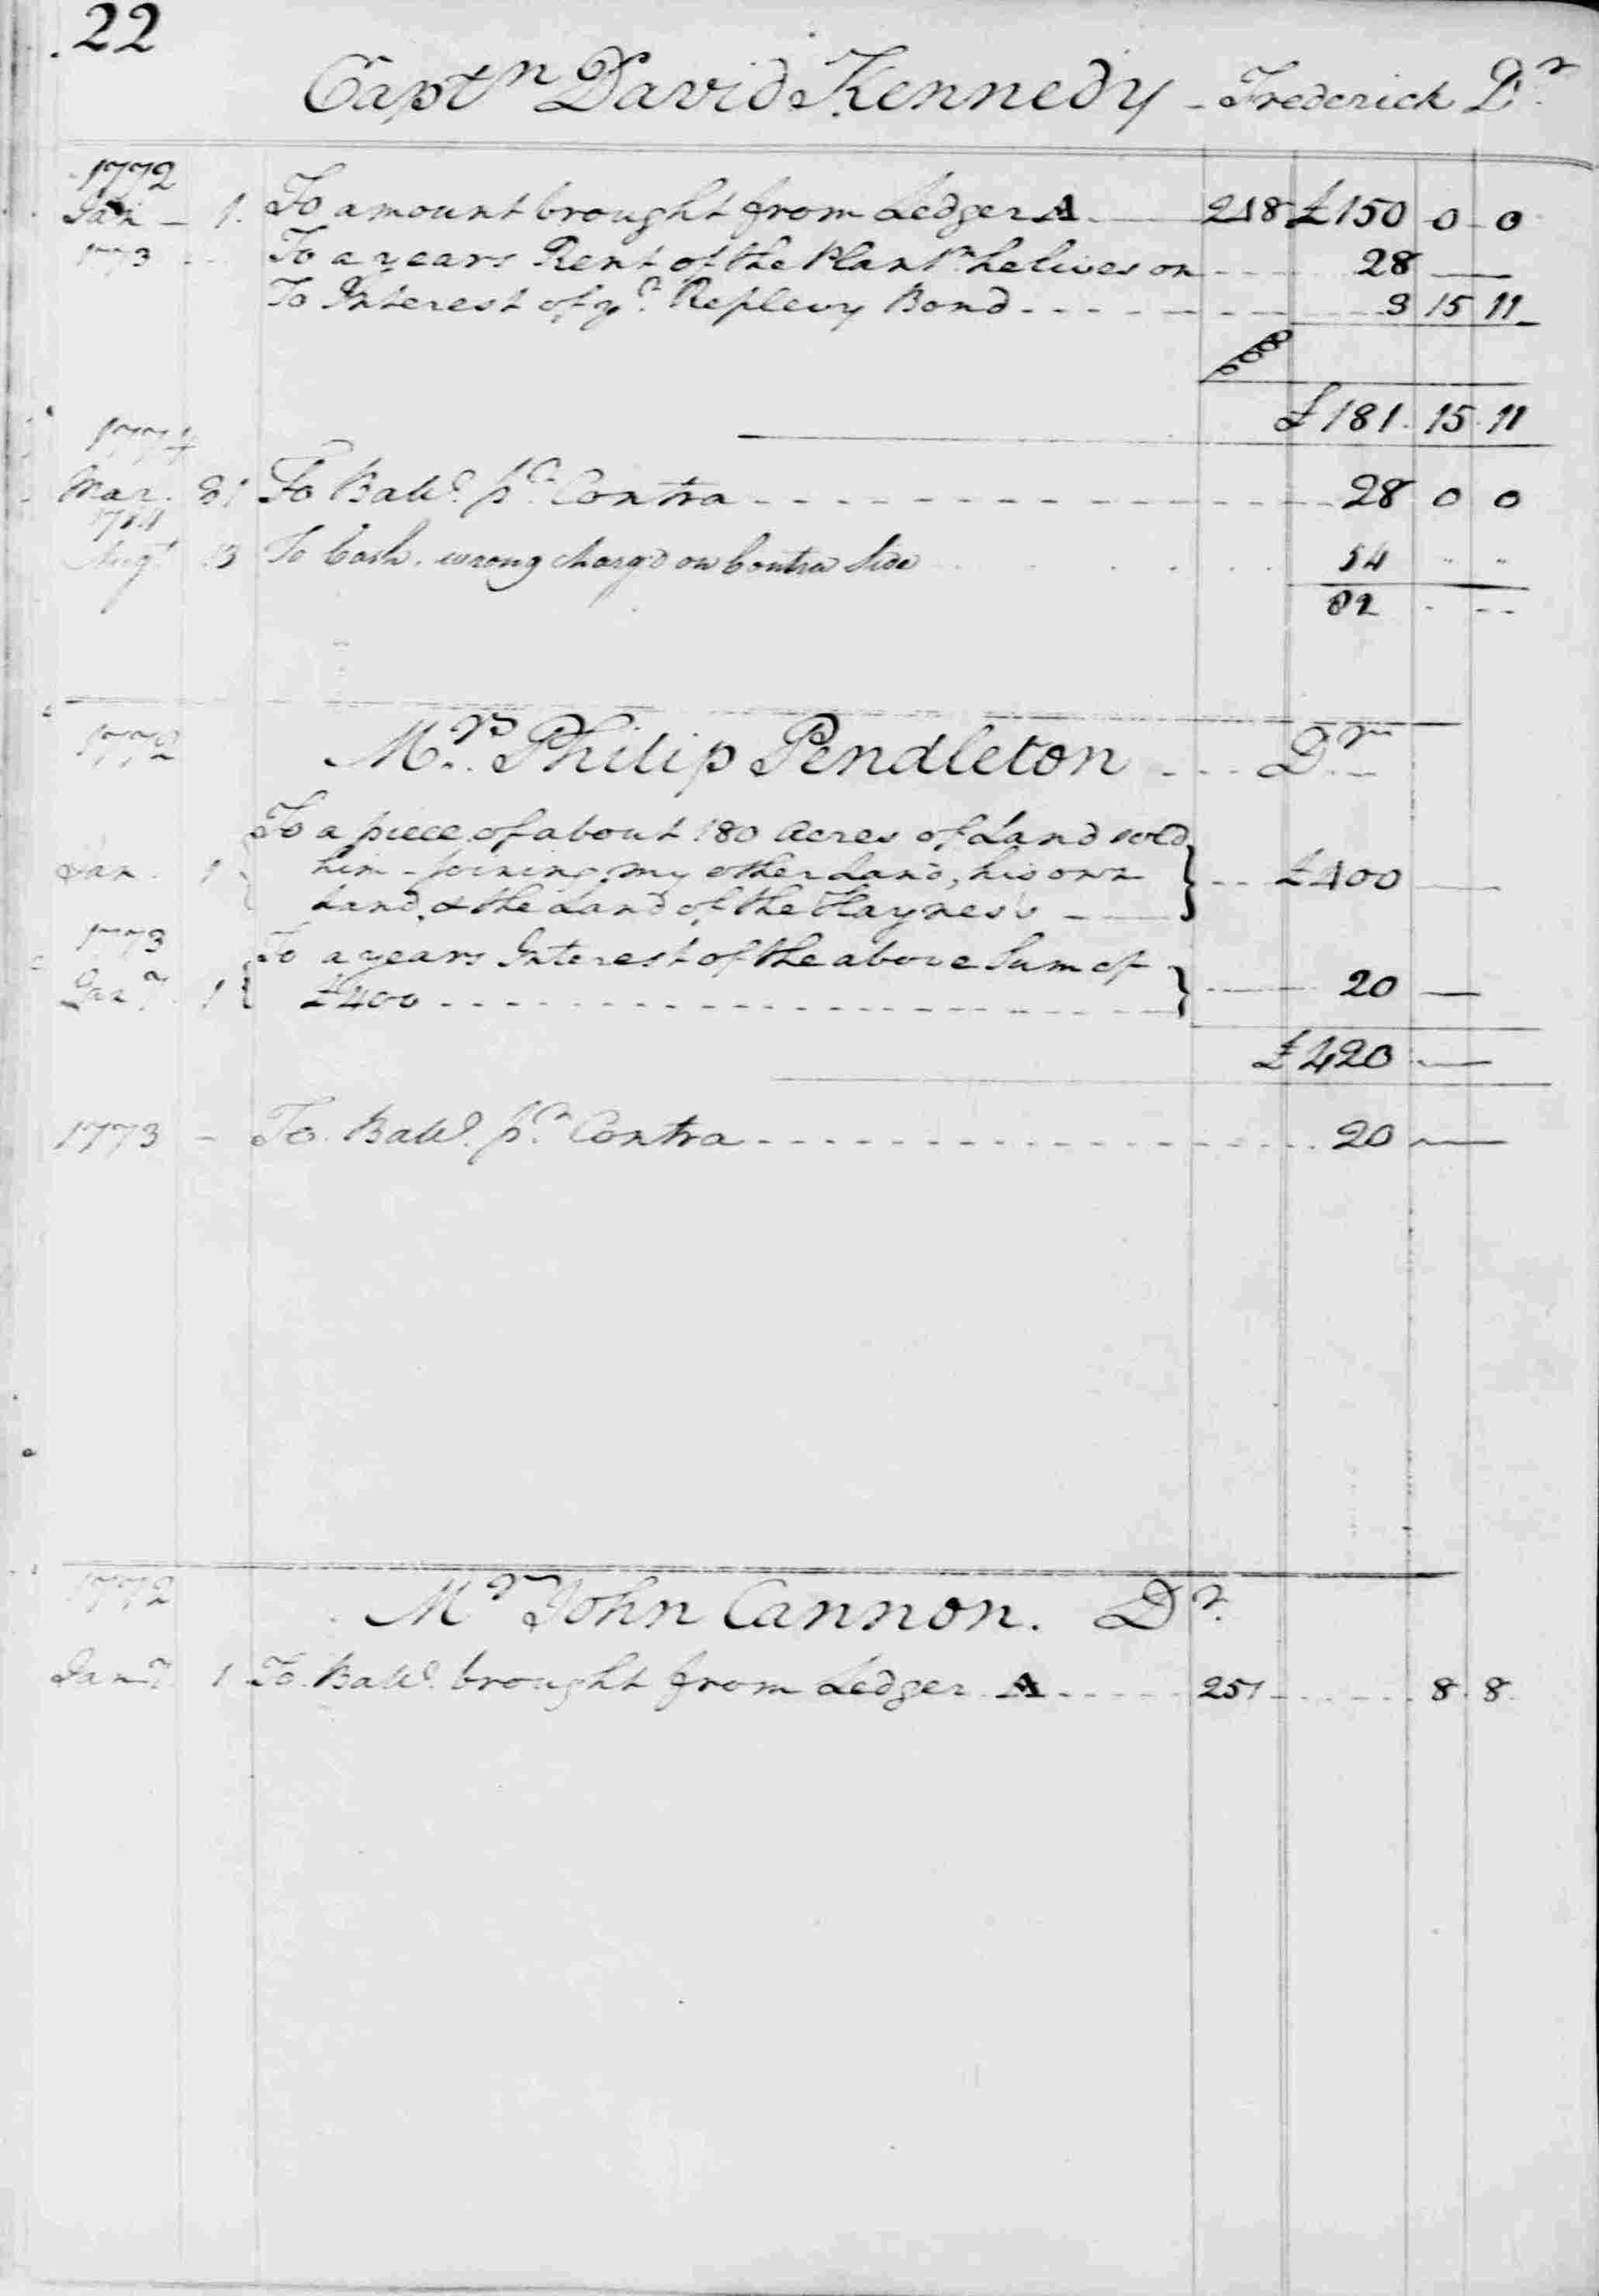 22
Captn David Kennedy - Frederick Dr.
1772
Jan - 1. To amount brought from Ledger A 218 £150 0 0
1773 To a years Rent of the Plantn he lives on 28
To Interest of yr Replevy Bond 3 15 11
£181. 15. 11
1774
Mar. 31 To Balle. pr. Contra 28 0 0
Augt. 13 To Cash wrong charg'd on Contra Side 54 " "
82 - --
1772 Mr. Philip Pendleton Dr.
To a piece of about 180 Acres of Land sold
Jan. 1 him - joining my other Land, his own £400
Land, & the Land of the Haynes's
1773 To a years Interest of the above Sum of
Jany. 1 £400 20
£420
1773 - To Balle. pr. Contra 20
1772
Mr John Cannon. Dr.
Jany. 1 To Balle. brought from Ledger A 251 8 8